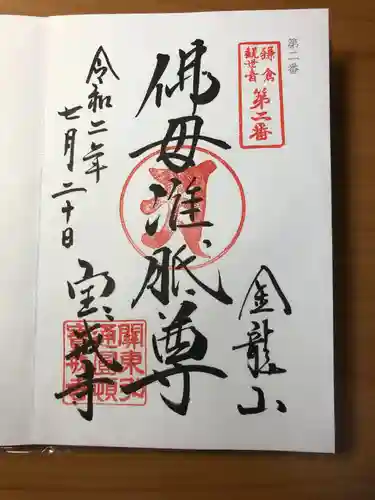 第二番
鎌倉
観世音
第二番
金龍山
佛母准胝尊
令和二年
七月二十日
宝戒寺